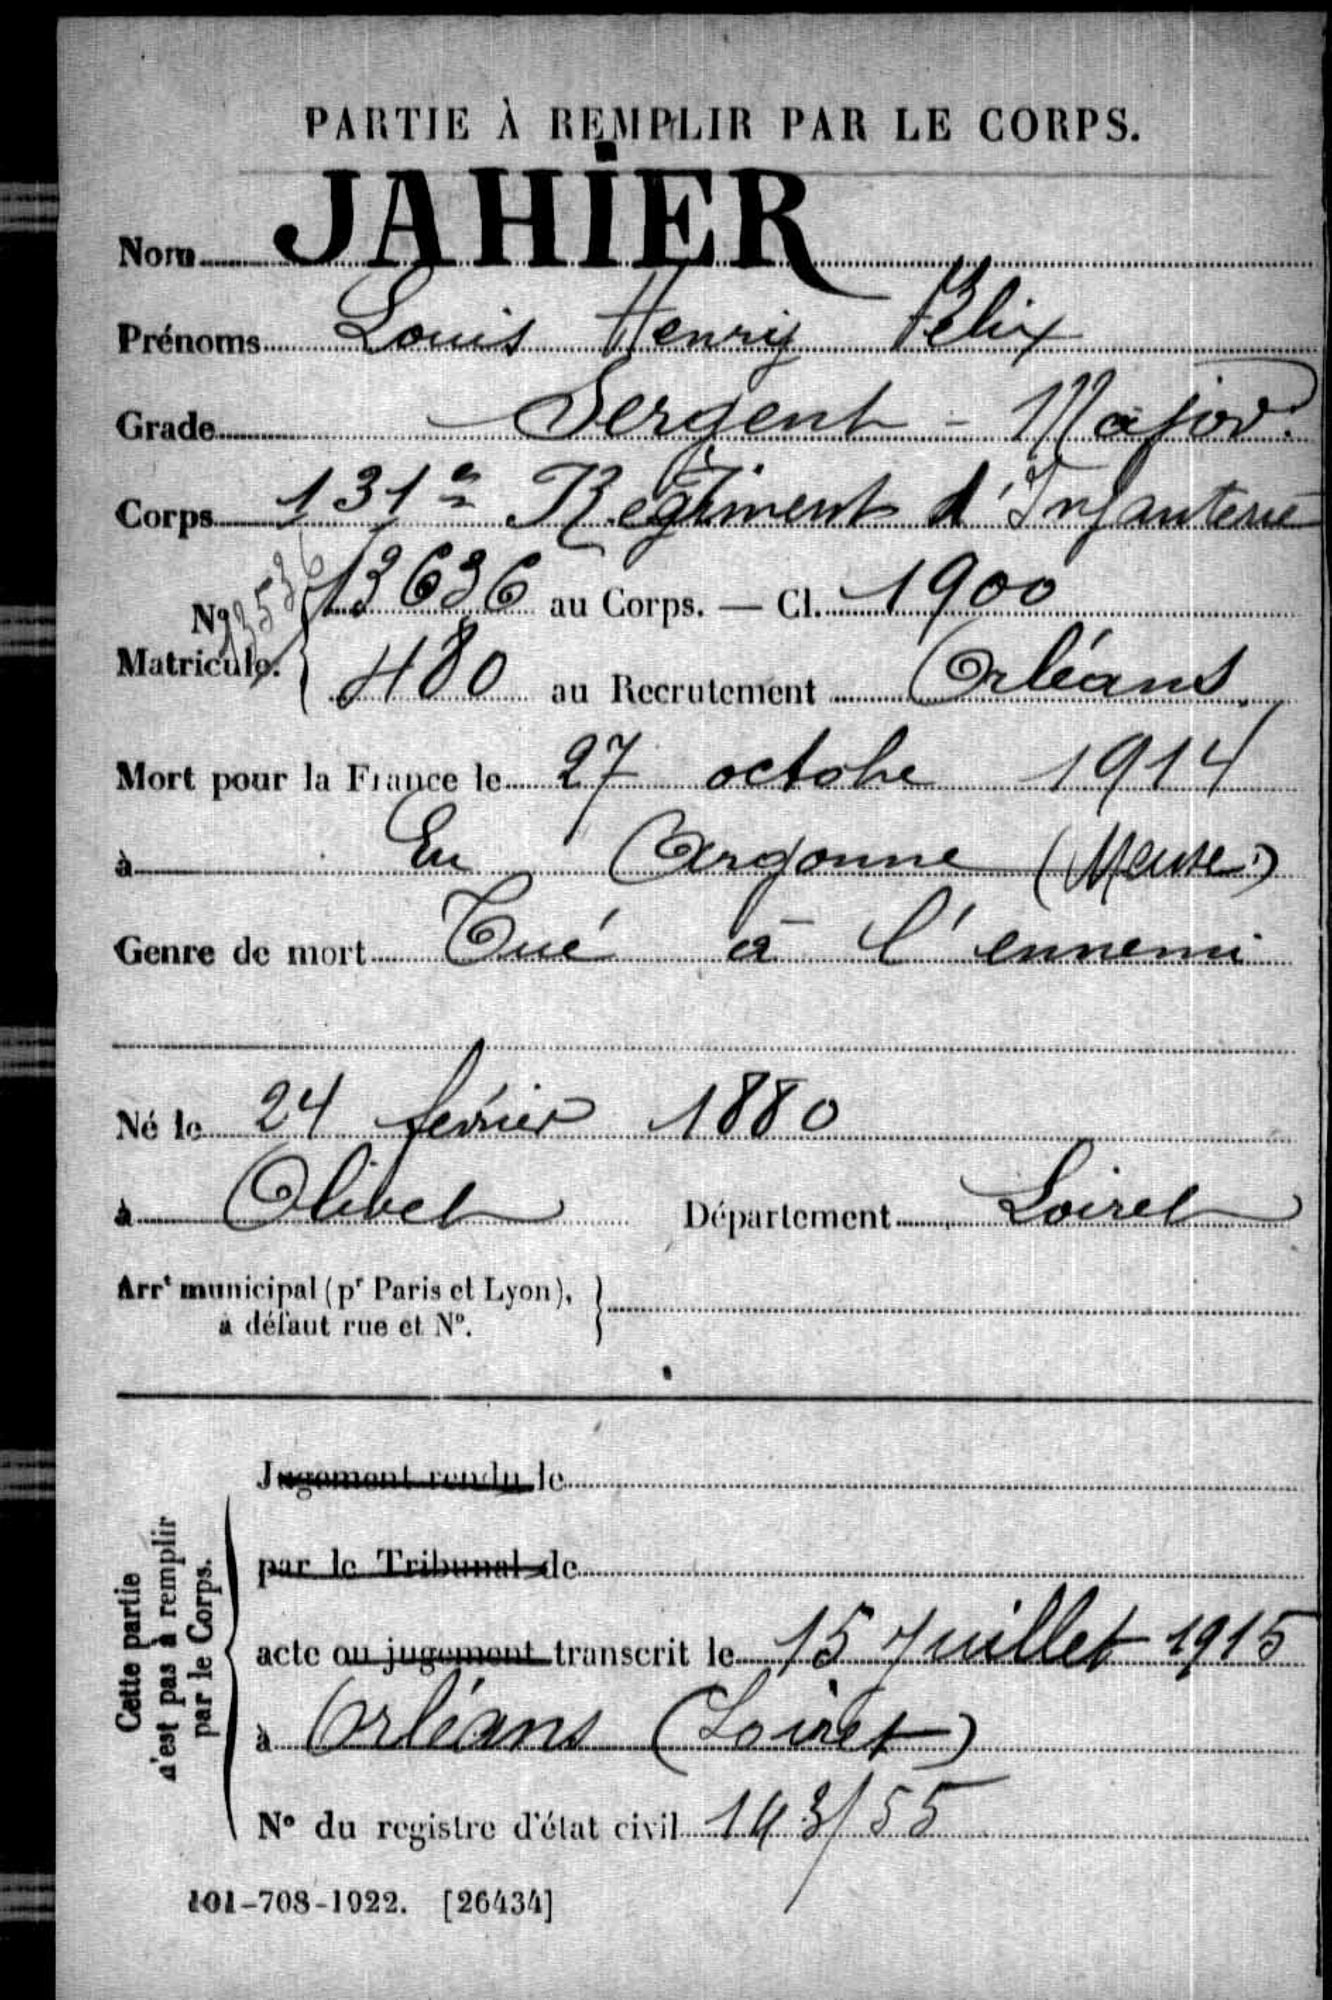 PARTIE À REMPLIR PAR LE CORPS.
Nom JAHIER
Prénoms Louis Henry Félix
Grade Sergent - Major.
Corps 131e Régiment d'Infanterie
No Matricule. 13536
13636 au Corps. — Cl. 1900
480 au Recrutement Orléans
Mort pour la France le 27 octobre 1914
à En Argonne (Meuse)
Genre de mort Tué à l'ennemi
Né le 24 février 1880
à Olivet Département Loiret
Arrt municipal (pr Paris et Lyon),
à défaut rue et No.
Jugement rendu le
par le Tribunal de
acte ou jugement transcrit le 15 Juillet 1915
à Orléans (Loiret)
No du registre d'état civil 143/55
Cette partie
n'est pas à remplir
par le Corps.
101-708-1922. [26434]